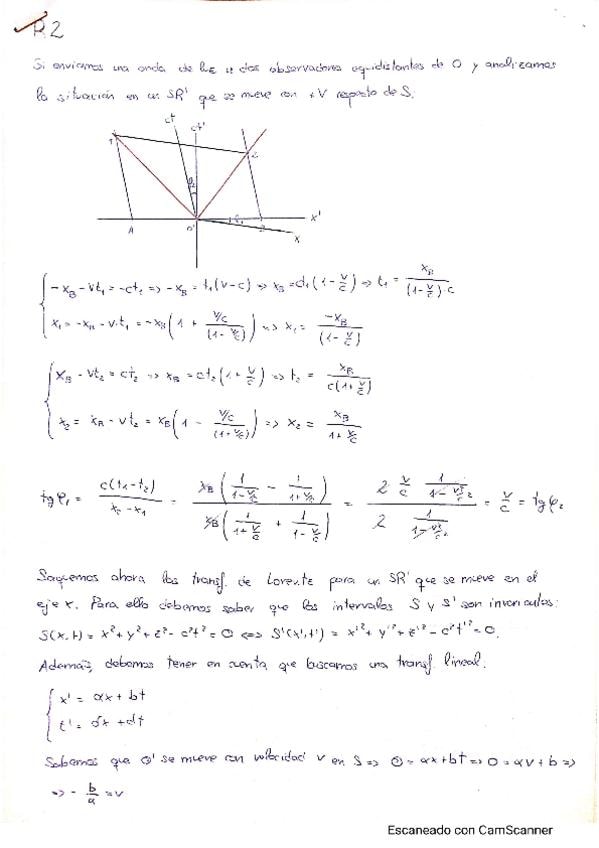 R2
Si enviamos una onda de luz a dos observadores equidistantes de O y analizamos
la situación en un SR' que se mueve con +V respecto de S.
ct
ct'
1
2
φ₂
φ₁
A
O'
B
x'
x
-x_B - vt₁ = -ct₁ => -x_B = t₁(v-c) => x_B = ct₁(1 - v/c) => t₁ = x_B/((1 - v/c)·c)
x₁ = -x_B - v·t₁ = -x_B(1 + (v/c)/(1 - v/c)) => x₁ = -x_B/(1 - v/c)
x_B - vt₂ = ct₂ => x_B = ct₂(1 + v/c) => t₂ = x_B/(c(1 + v/c))
x₂ = x_B - vt₂ = x_B(1 - (v/c)/(1 + v/c)) => x₂ = x_B/(1 + v/c)
tg φ₁ = c(t₁ - t₂)/(x₂ - x₁) = x_B(1/(1 - v/c) - 1/(1 + v/c))/(x_B(1/(1 + v/c) + 1/(1 - v/c))) = (2 v/c 1/(1 - v²/c²))/(2 1/(1 - v²/c²)) = v/c = tg φ₂
Saquemos ahora las transf. de Lorentz para un SR' que se mueve en el
eje x. Para ello debemos saber que los intervalos S y S' son invariantes:
S(x,t) = x² + y² + z² - c²t² = 0 <=> S'(x',t') = x'² + y'² + z'² - c²t'² = 0.
Además, debemos tener en cuenta que buscamos una transf. lineal.
x' = ax + bt
t' = δx + dt
Sabemos que O' se mueve con velocidad v en S => 0 = ax + bt => 0 = av + b =>
=> - b/a = v
Escaneado con CamScanner